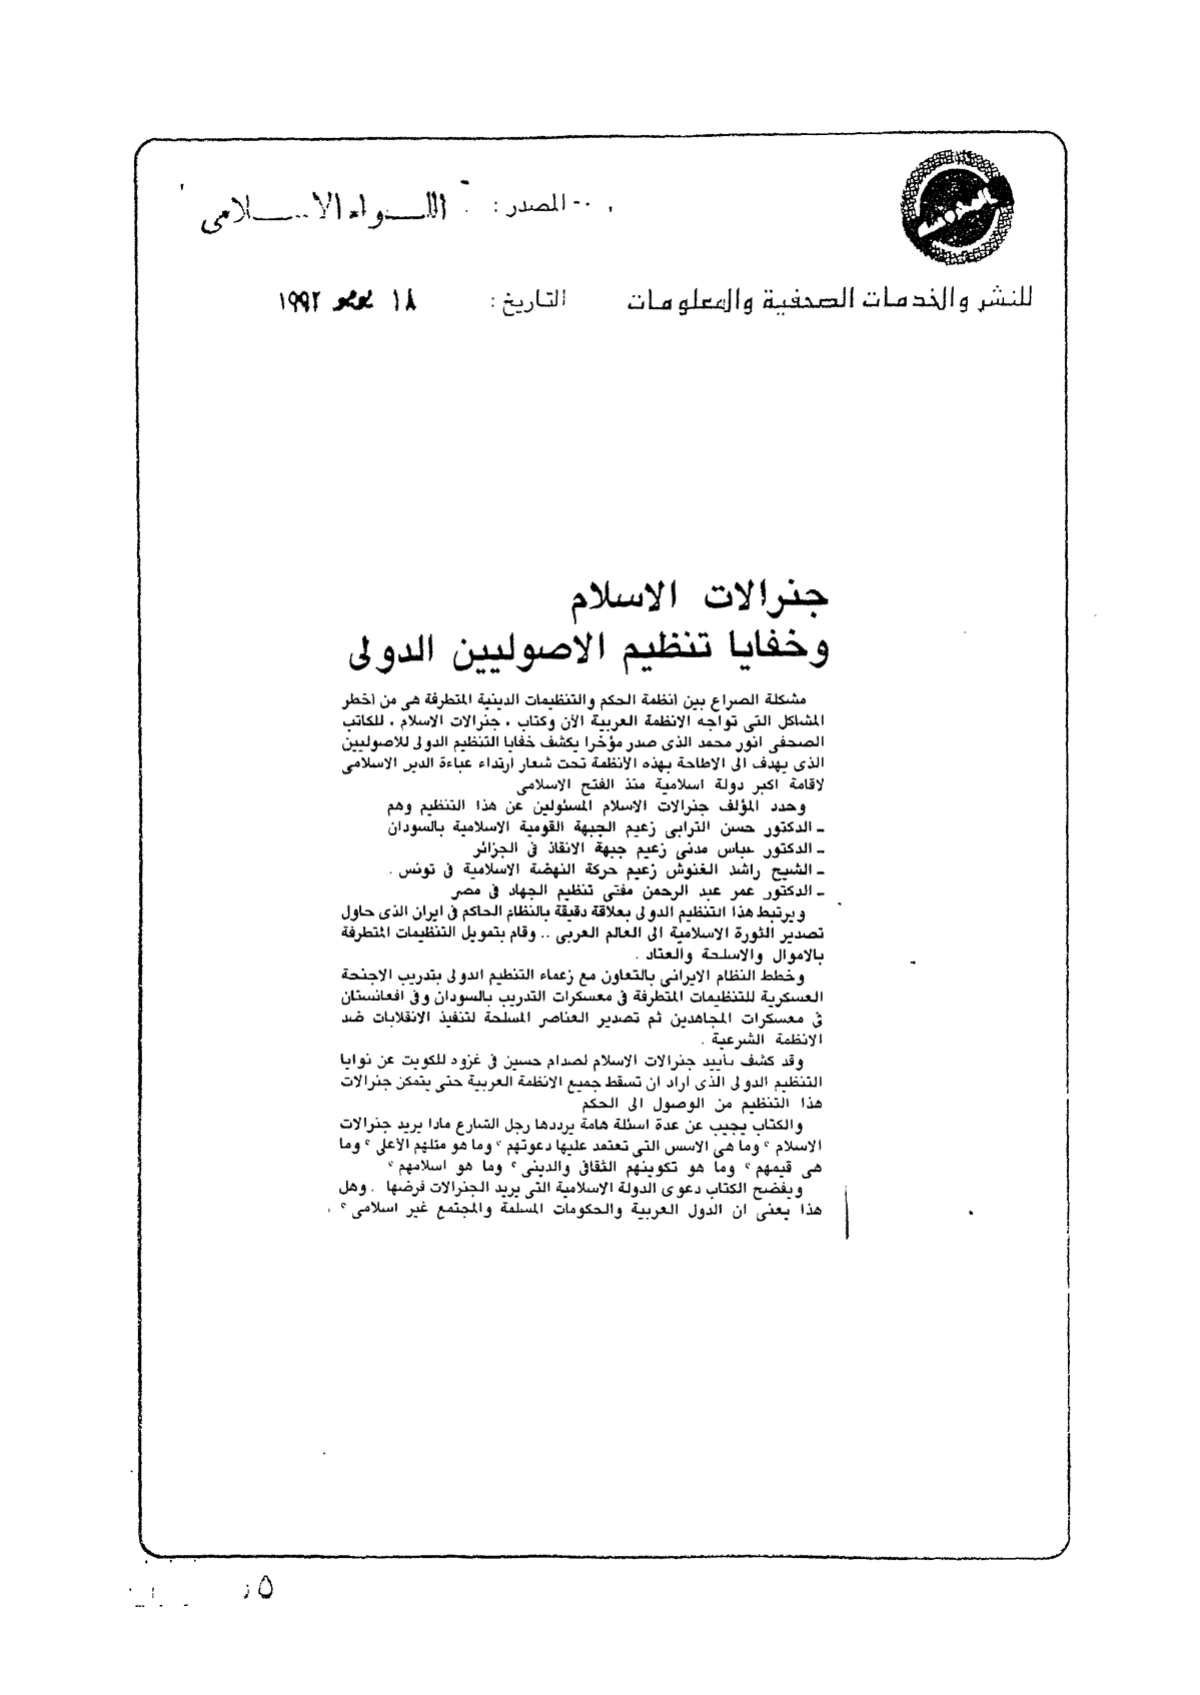 المصدر : اللــواء الاســلامى
للنشر والخدمات الصحفية والمعلومات التاريخ : ١٨ يونيو ١٩٩٢
جنرالات الاسلام
وخفايا تنظيم الاصوليين الدولى
مشكلة الصراع بين انظمة الحكم والتنظيمات الدينية المتطرفة هى من أخطر
المشاكل التى تواجه الانظمة العربية الآن وكتاب ، جنرالات الاسلام ، للكاتب
الصحفى انور محمد الذى صدر مؤخرا يكشف خفايا التنظيم الدولى للاصوليين
الذى يهدف الى الاطاحة بهذه الانظمة تحت شعار ارتداء عباءة الدين الاسلامى
لاقامة اكبر دولة اسلامية منذ الفتح الاسلامى
وحدد المؤلف جنرالات الاسلام المسئولين عن هذا التنظيم وهم
ـ الدكتور حسن الترابى زعيم الجبهة القومية الاسلامية بالسودان
ـ الدكتور عباس مدنى زعيم جبهة الانقاذ فى الجزائر
ـ الشيخ راشد الغنوش زعيم حركة النهضة الاسلامية فى تونس .
ـ الدكتور عمر عبد الرحمن مفتى تنظيم الجهاد فى مصر
ويرتبط هذا التنظيم الدولى بعلاقة دقيقة بالنظام الحاكم فى ايران الذى حاول
تصدير الثورة الاسلامية الى العالم العربى .. وقام بتمويل التنظيمات المتطرفة
بالاموال والاسلحة والعتاد .
وخطط النظام الايرانى بالتعاون مع زعماء التنظيم الدولى بتدريب الاجنحة
العسكرية للتنظيمات المتطرفة فى معسكرات التدريب بالسودان وفى افغانستان
فى معسكرات المجاهدين ثم تصدير العناصر المسلحة لتنفيذ الانقلابات ضد
الانظمة الشرعية .
وقد كشف تأييد جنرالات الاسلام لصدام حسين فى غزوه للكويت عن نوايا
التنظيم الدولى الذى اراد ان تسقط جميع الانظمة العربية حتى يتمكن جنرالات
هذا التنظيم من الوصول الى الحكم
والكتاب يجيب عن عدة اسئلة هامة يرددها رجل الشارع ماذا يريد جنرالات
الاسلام ؟ وما هى الاسس التى تعتمد عليها دعوتهم ؟ وما هو مثلهم الأعلى ؟ وما
هى قيمهم ؟ وما هو تكوينهم الثقافى والدينى ؟ وما هو اسلامهم ؟
ويفضح الكتاب دعوى الدولة الاسلامية التى يريد الجنرالات فرضها . وهل
هذا يعنى ان الدول العربية والحكومات المسلمة والمجتمع غير اسلامى ؟